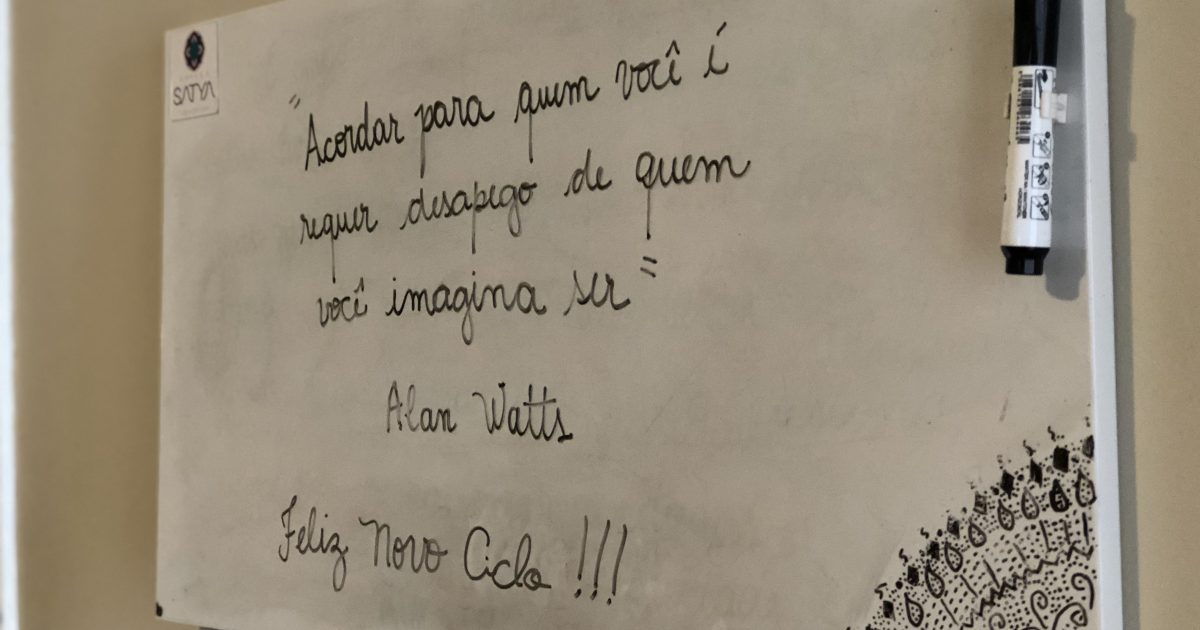 SATYA
"Acordar para quem você é
requer desapego de quem
você imagina ser"
Alan Watts
Feliz Novo Ciclo !!!